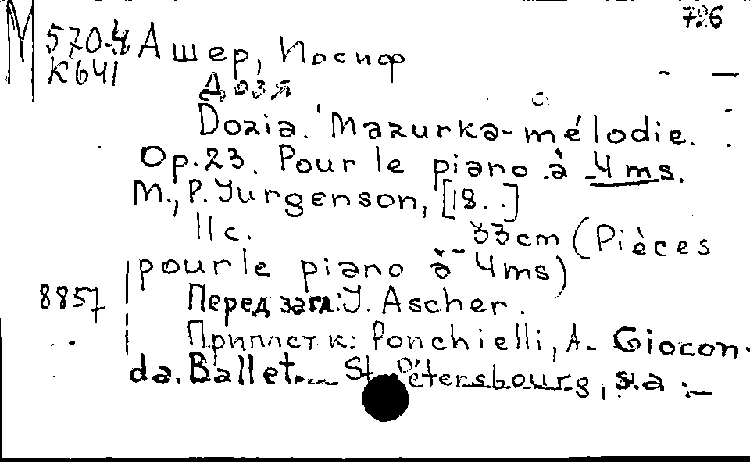 726
М 570-4 Ашер, Иосиф
К641
Дозя
Dozia. Mazurka-mélodie.
Op. 23. Pour le piano à 4 ms.
M., P. Jurgenson, [18..]
11 c. 33 cm (Pièces
pour le piano à 4 ms)
8857 Перед загл: J. Ascher.
Приплет к: Ponchielli, A. Giocon-
da. Ballet... St. Pétersbourg, s.a.